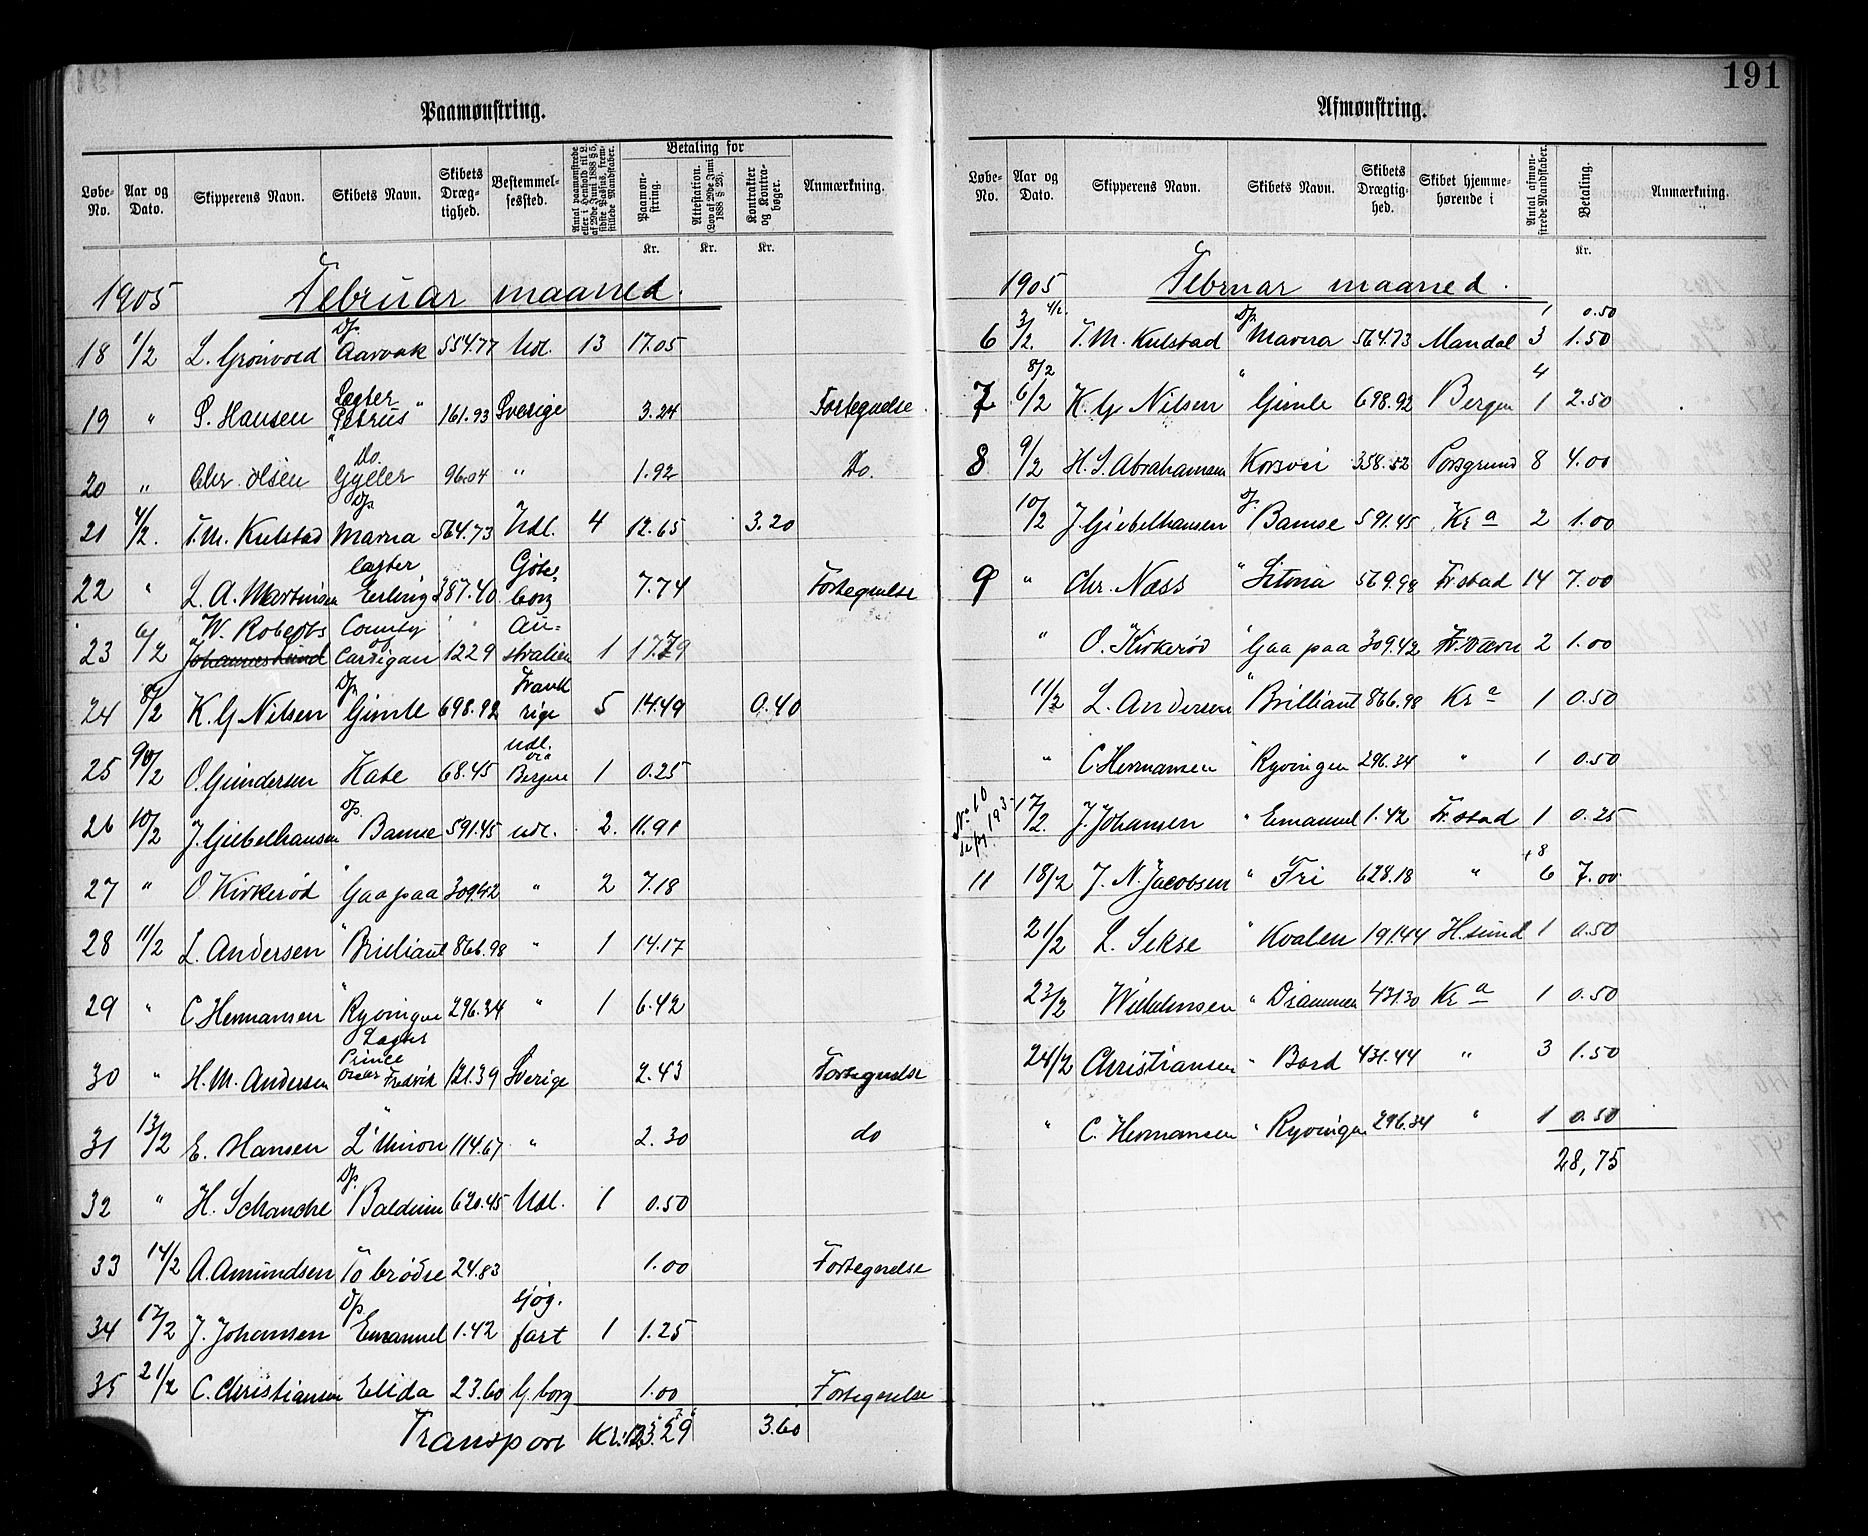 191
Paamønstring.
Løbe-No. Aar og Dato. Skipperens Navn. Skibets Navn. Skibets Dræg-tighed. Bestemmel-sessted. Antal paamønstrede eller i Henhold til L. af 29de Juni 1888 § 5, sidste Passus, frem-stillede Mandskaber. Betaling for Paamøn-string. Attestation. (Lov af 29de Juni 1888 § 23). Kontrakter og Kontra-bøger. Anmærkning.
Kr. Kr. Kr.
1905 Februar maaned.
18 1/2 L. Grönvold Dp. Aarvak 554.77 Udl. 13 17.05
19 " S. Hansen Lægter "Petrus" 161.93 Sverige 3.24 Fortegnelse.
20 " Chr. Olsen Do. Gyller 96.04 " 1.92 Do.
21 4/2. T. M. Kulstad Dp. Mavna 564.73 Udl. 4 12.65 3.20
22 " L. A. Martinsen Lægter Erling 387.40 Göte-borg 7.74 Fortegnelse
23 6/2 W. Roberts County of Cardigan 1229 Au-stralien 1 17.79
24 8/2 K. G Nilsen Dp. Gimle 698.92 Frank rige 5 14.49 0.40
25 9/2 O. Gundersen Kate 68.45 Udl. via Bergen 1 0.25
26 10/2 J. Giebelhausen Dp. Bamse 591.45 Udl. 2. 11.91
27 " O Kirkerød " Gaa paa 309.42 " 2 7.18
28 11/2 L. Andersen " Brilliant 866.98 " 1 14.17
29 " C Hermansen " Ryvingen 296.34 " 1 6.42
30 " H. M. Andersen Lægter Prince Oscar Fredrik 121.39 Sverige 2.43 Fortegnelse
31 13/2 E. Hansen " L'Union 114.67 " 2.30 do
32 " H. Schanche Dp. Balduin 620.45 Udl. 1 0.50
33 14/2 A. Amundsen To brødre 24.83 1.00 Fortegnelse
34 17/2 J. Johansen Dp. Emanuel 1.42 sjøg. fart 1 1.25
35 21/2 C. Christiansen Elida 23.60 G. borg 1.00 Fortegnelse
Transport Kr. 123.29 3.60
Afmønstring.
Løbe-No. Aar og Dato. Skipperens Navn. Skibets Navn. Skibets Drægtig-hed. Skibet hjemme-hørende i Antal afmøn-strede Mandskaber. Betaling. Anmærkning.
Kr.
1905 Februar maaned.
4/2. 1 0.50
6 3/2. T. M. Kulstad Dp. Mavna 564.73 Mandal 3 1.50
8/2 4
7 6/2 K. G Nilsen " Gimle 698.92 Bergen 1 2.50
8 9/2 H. S. Abrahamsen Korsvei 358.52 Porsgrund 8 4.00
10/2 J. Giebelhausen Dp. Bamse 591.45 Kra 2 1.00
9 " Chr. Næss " Sitona 569.98 Fr.stad 14 7.00
" O. Kirkerød " Gaa paa 309.42 Fr.værn 2 1.00
11/2 L. Andersen " Brilliant 866.98 Kra 1 0.50
" C Hermansen " Ryvingen 296.34 " 1 0.50
No 10 se pg 193 17/2. J. Johansen " Emanuel 1.42 Fr.stad 1 0.25
11 18/2 J. N. Jacobsen " Fri 628.18 " +8 6 7.00
21/2 L. Sekse " Kvalen 191.44 H.sund 1 0.50
23/2 Wilhelmsen " Drammen 431.30 Kra 1 0.50
24/2 Christiansen " Bard 431.44 " 3 1.50
" C. Hermansen " Ryvingen 296.34 " 1 0.50
28,75